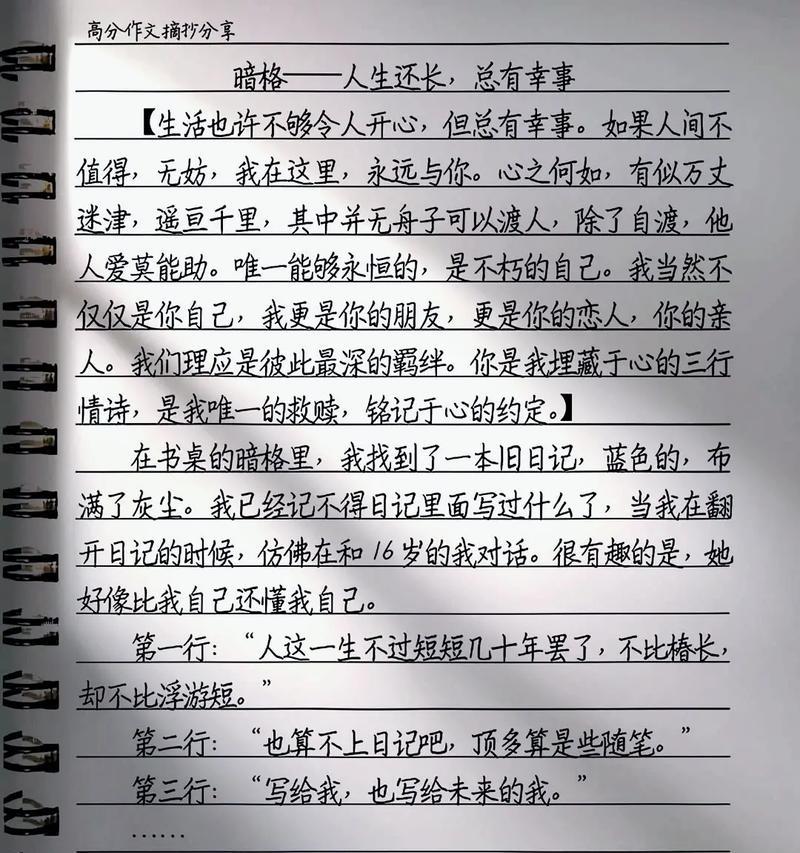 高分作文摘抄分享
暗格——人生还长，总有幸事
【生活也许不够令人开心，但总有幸事。如果人间不
值得，无妨，我在这里，永远与你。心之何如，有似万丈
迷津，遥亘千里，其中并无舟子可以渡人，除了自渡，他
人爱莫能助。唯一能够永恒的，是不朽的自己。我当然不
仅仅是你自己，我更是你的朋友，更是你的恋人，你的亲
人。我们理应是彼此最深的羁绊。你是我埋藏于心的三行
情诗，是我唯一的救赎，铭记于心的约定。】
在书桌的暗格里，我找到了一本旧日记，蓝色的，布
满了灰尘。我已经记不得日记里面写过什么了，当我在翻
开日记的时候，仿佛在和16岁的我对话。很有趣的是，她
好像比我自己还懂我自己。
第一行：“人这一生不过短短几十年罢了，不比椿长，
却不比浮游短。”
第二行：“也算不上日记吧，顶多算是些随笔。”
第三行：“写给我，也写给未来的我。”
……